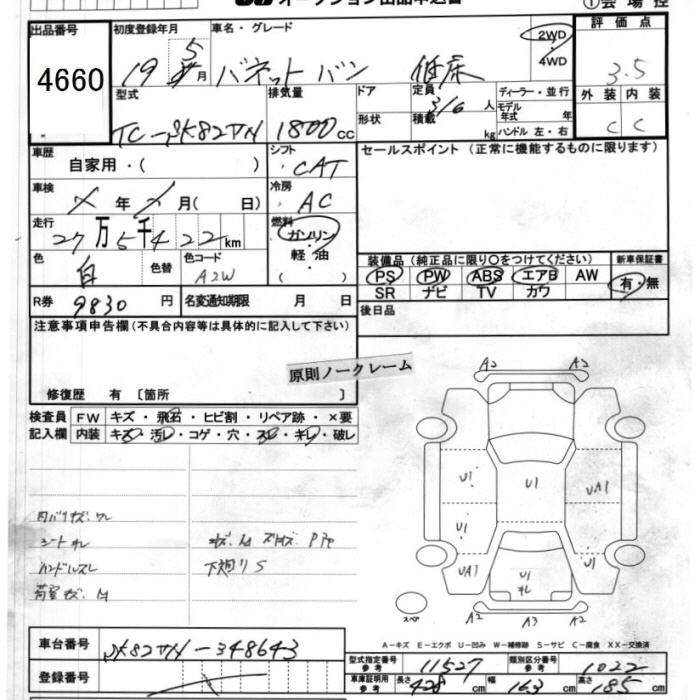 オークション出品申込書 ①会場控
出品番号 初度登録年月 車名・グレード 2WD・4WD 評価点
4660 19年5月 バネットバン 低床 3.5
型式 排気量 ドア 定員 3/6人 ディーラー・並行 外装 内装
TC-SK82VN 1800cc 形状 積載 kg モデル年式 年 ハンドル 左・右 C C
車歴 自家用・( ) シフト CAT セールスポイント (正常に機能するものに限ります)
車検 年 月( 日) 冷房 AC
走行 27万5千422km 燃料 ガソリン・軽油・( )
色 白 色替 色コード A2W 装備品 (純正品に限り○をつけてください) 新車保証書
PS PW ABS エアB AW 有・無
SR ナビ TV カワ
R券 9830円 名変通知期限 月 日 後日品
注意事項申告欄(不具合内容等は具体的に記入して下さい)
原則ノークレーム
修復歴 有 〔箇所 〕
検査員 FW キズ・飛石・ヒビ割・リペア跡・×要
記入欄 内装 キズ・汚レ・コゲ・穴・スレ・キレ・破レ
A2 A2
U1 U1 UA1
U1
UA1 U1 U1
キレ
内バリキズ、ワレ
シートキレ キズ、凹
ハンドルスレ 下廻りS
荷室キズ、凹
スペア A2 A3 A2
A-キズ E-エクボ U-凹み W-補修跡 S-サビ C-腐食 XX-交換済
車台番号 SK82VN-348643
登録番号
型式指定番号 参考 11527 類別区分番号 参考 1022
車庫証明用 参考 長さ 428cm 幅 163cm 高さ 185cm